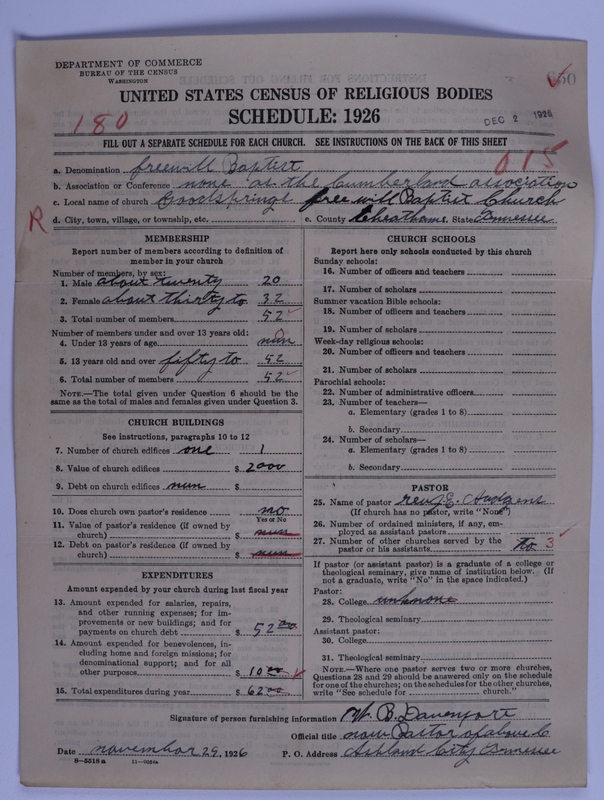 DEPARTMENT OF COMMERCE
BUREAU OF THE CENSUS
WASHINGTON
UNITED STATES CENSUS OF RELIGIOUS BODIES
SCHEDULE: 1926
DEC 2 1926
180
FILL OUT A SEPARATE SCHEDULE FOR EACH CHURCH. SEE INSTRUCTIONS ON THE BACK OF THIS SHEET
015
a. Denomination freewill Baptist
b. Association or Conference none as the Cumberland association
c. Local name of church Goodspringe free will Baptist Church
R
d. City, town, village, or township, etc. e. County Cheatham State Tennessee
MEMBERSHIP
Report number of members according to definition of
member in your church
Number of members, by sex:
1. Male about twenty 20
2. Female about thirty to 32
3. Total number of members 52
Number of members under and over 13 years old:
4. Under 13 years of age nun
5. 13 years old and over fifty to 52
6. Total number of members 52
NOTE.—The total given under Question 6 should be
same as the total of males and females given under Question 3.
CHURCH BUILDINGS
See instructions, paragraphs 10 to 12
7. Number of church edifices one 1
8. Value of church edifices $ 2000
9. Debt on church edifices nun $
10. Does church own pastor's residence? no
Yes or No
11. Value of pastor's residence (if owned by
church) $ nun
12. Debt on pastor's residence (if owned by
church) $ nun
EXPENDITURES
Amount expended by your church during last fiscal year
13. Amount expended for salaries, repairs,
and other running expenses; for im-
provements or new buildings; and for
payments on church debt $ 52 00
14. Amount expended for benevolences, in-
cluding home and foreign missions; for
denominational support; and for all
other purposes $ 10 00
15. Total expenditures during year $ 62 00
CHURCH SCHOOLS
Report here only schools conducted by this church
Sunday schools:
16. Number of officers and teachers
17. Number of scholars
Summer vacation Bible schools:
18. Number of officers and teachers
19. Number of scholars
Week-day religious schools:
20. Number of officers and teachers
21. Number of scholars
Parochial schools:
22. Number of administrative officers
23. Number of teachers—
a. Elementary (grades 1 to 8)
b. Secondary
24. Number of scholars—
a. Elementary (grades 1 to 8)
b. Secondary
PASTOR
25. Name of pastor rev J.E. Hudgens
(If church has no pastor, write "None")
26. Number of ordained ministers, if any, em-
ployed as assistant pastors
27. Number of other churches served by the
pastor or his assistants to 3
If pastor (or assistant pastor) is a graduate of a college or
theological seminary, give name of institution below. (If
not a graduate, write "No" in the space indicated.)
Pastor:
28. College unknone
29. Theological seminary
Assistant pastor:
30. College
31. Theological seminary
NOTE.—Where one pastor serves two or more churches,
Questions 28 and 29 should be answered only on the schedule
for one of the churches; on the schedules for the other churches,
write "See schedule for church."
Signature of person furnishing information W. B. Davenport
Official title now Pastor of above C
Date november 29, 1926 P. O. Address Ashland City Tennessee
8—5518 a 11—9034a